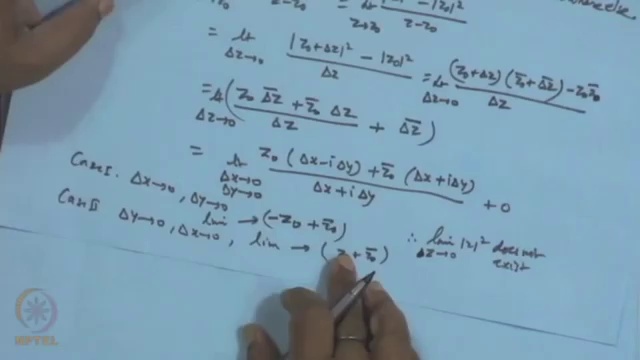 = lt Δz→0 |z₀+Δz|² − |z₀|² / Δz = lt Δz→0 (z₀+Δz)(z̄₀+Δz̄) − z₀z̄₀ / Δz
= lt Δz→0 ( z₀ Δz̄ + z̄₀ Δz / Δz + Δz̄ )
= lt Δx→0 Δy→0 z₀ (Δx−iΔy) + z̄₀ (Δx+iΔy) / Δx+iΔy + 0
Case I. Δx→0, Δy→0 lim → (−z₀ + z̄₀)
Case II Δy→0, Δx→0, lim → ( + z̄₀)
∴ lim Δz→0 |z|² does not
exist
NPTEL